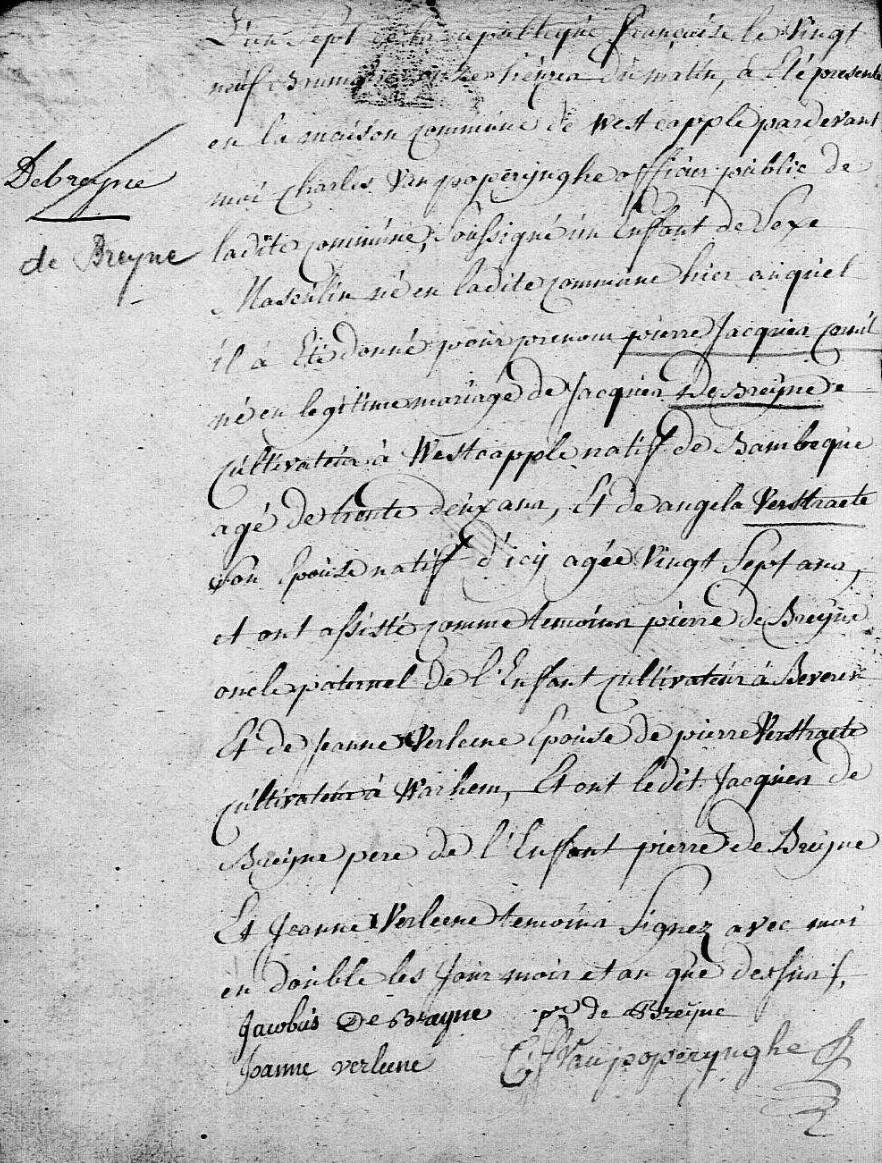 L'an Sept de la republique françaïse le Vingt
neuf Brumaire onze heures du matin, à Eté presenté
en la maison commune de West capple pardevant
Debreyne
moi Charles Van poperÿnghe officier public de
ladite commune, soussigné un Enfant de Sexe
de Breyne
Masculin né en ladite commune hier auquel
il à Eté donné pour prenom pierre Jacques Cornil
né en legitime mariage de Jacques De Breÿne
Cultivateur à Westcapple natif de Bambeque
agé de trente deux ans, Et de angela Verstraete
Son Epouse natif d'icÿ agée Vingt Sept ans,
et ont assisté comme temoins pierre de Breÿne
oncle paternel de l'Enfant cultivateur à
Et de Jeanne Verleene Epouse de pierre Verstraete
cultivateur à Warhem, Et ont ledit Jacques de
Breÿne pere de l'Enfant pierre de Breÿne
Et Jeanne Verleene temoins Signez avec moi
en double les Jour mois et an que dessus
Jacobus De Breyne pr de Breÿne
Joanne verleene C. Van poperÿnghe